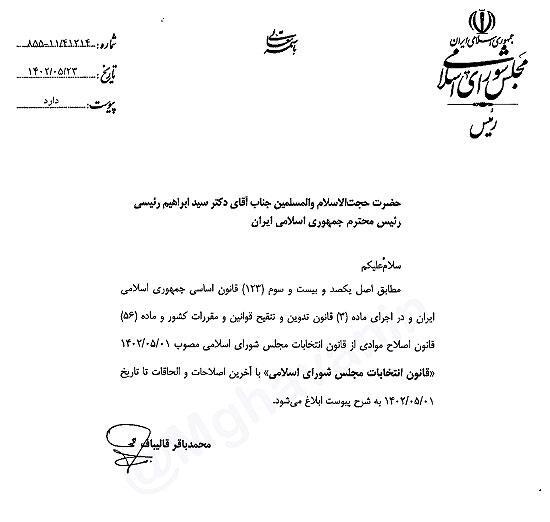 جمهوری اسلامی ایران
مجلس شورای اسلامی
رئیس
باسمه تعالی
شماره: ۸۵۵-۱۱/۴۱۲۱۴
تاریخ: ۱۴۰۲/۰۵/۲۳
پیوست: دارد
حضرت حجت‌الاسلام والمسلمین جناب آقای دکتر سید ابراهیم رئیسی
رئیس محترم جمهوری اسلامی ایران
سلامٌ علیکم
مطابق اصل یکصد و بیست و سوم (۱۲۳) قانون اساسی جمهوری اسلامی
ایران و در اجرای ماده (۳) قانون تدوین و تنقیح قوانین و مقررات کشور و ماده (۵۶)
قانون اصلاح موادی از قانون انتخابات مجلس شورای اسلامی مصوب ۱۴۰۲/۰۵/۰۱
«قانون انتخابات مجلس شورای اسلامی» با آخرین اصلاحات و الحاقات تا تاریخ
۱۴۰۲/۰۵/۰۱ به شرح پیوست ابلاغ می‌شود.
محمدباقر قالیباف